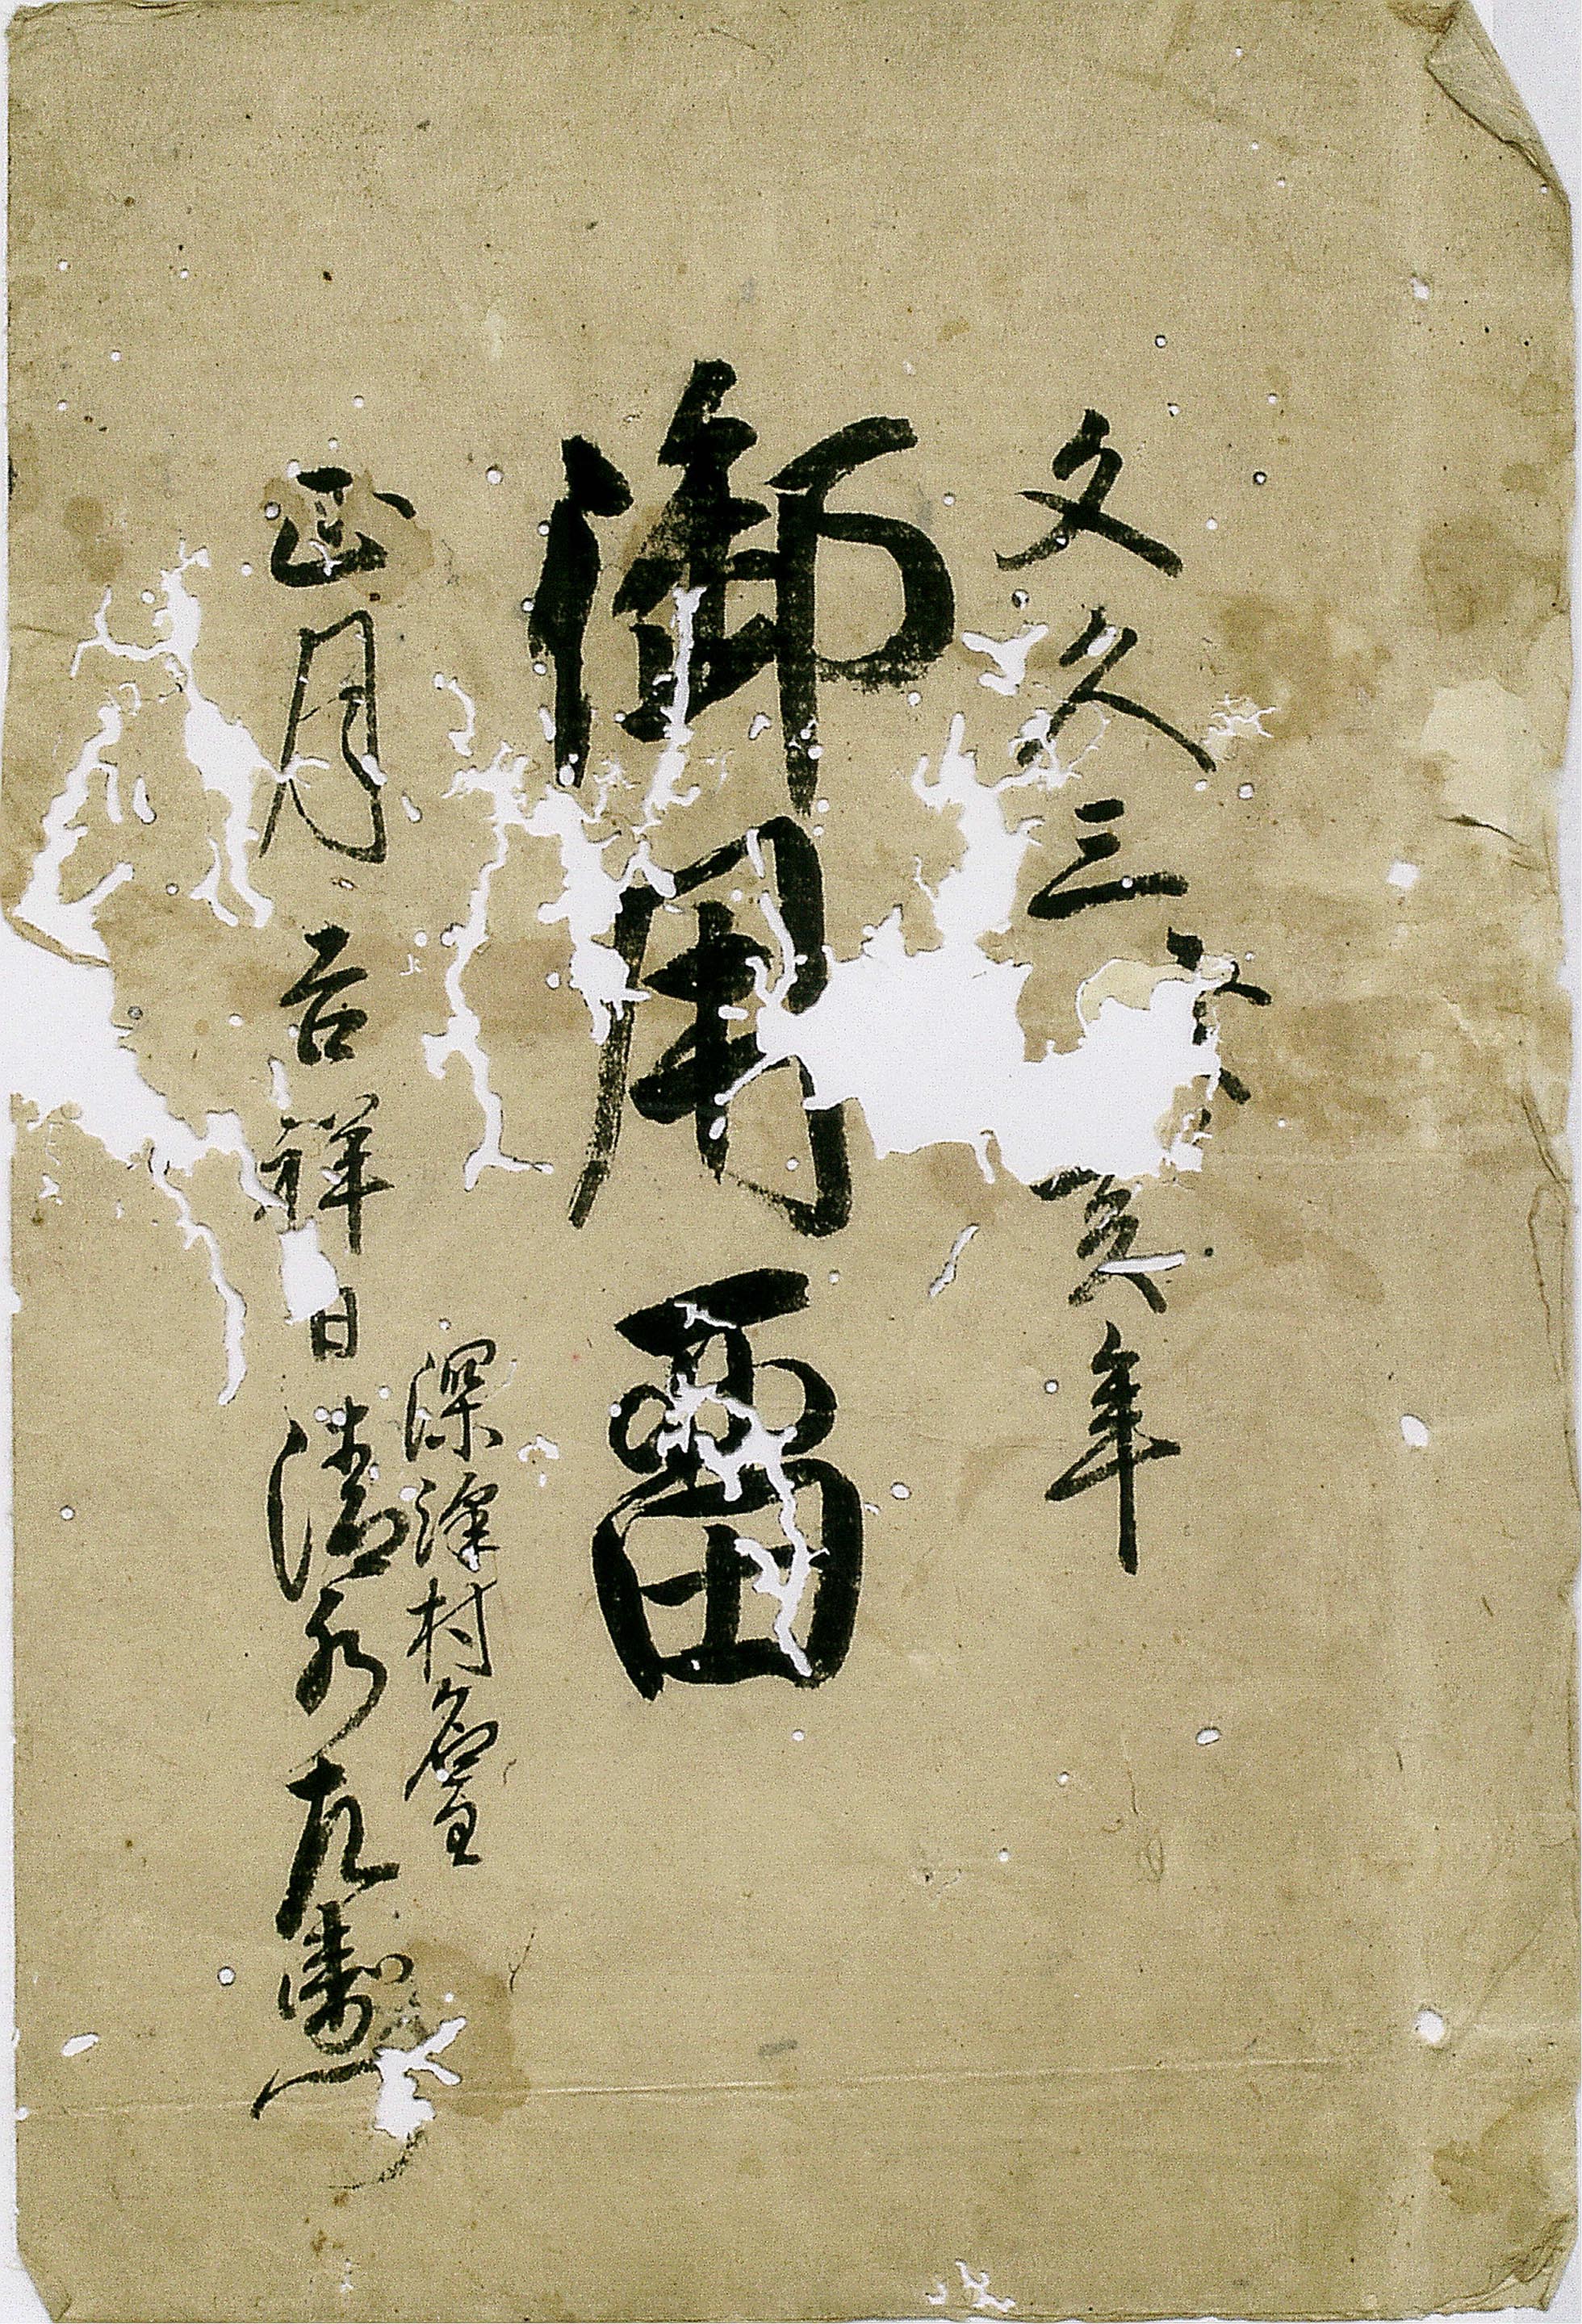 文久三癸亥年
御用畱
正月吉祥日
深澤村名主
清水